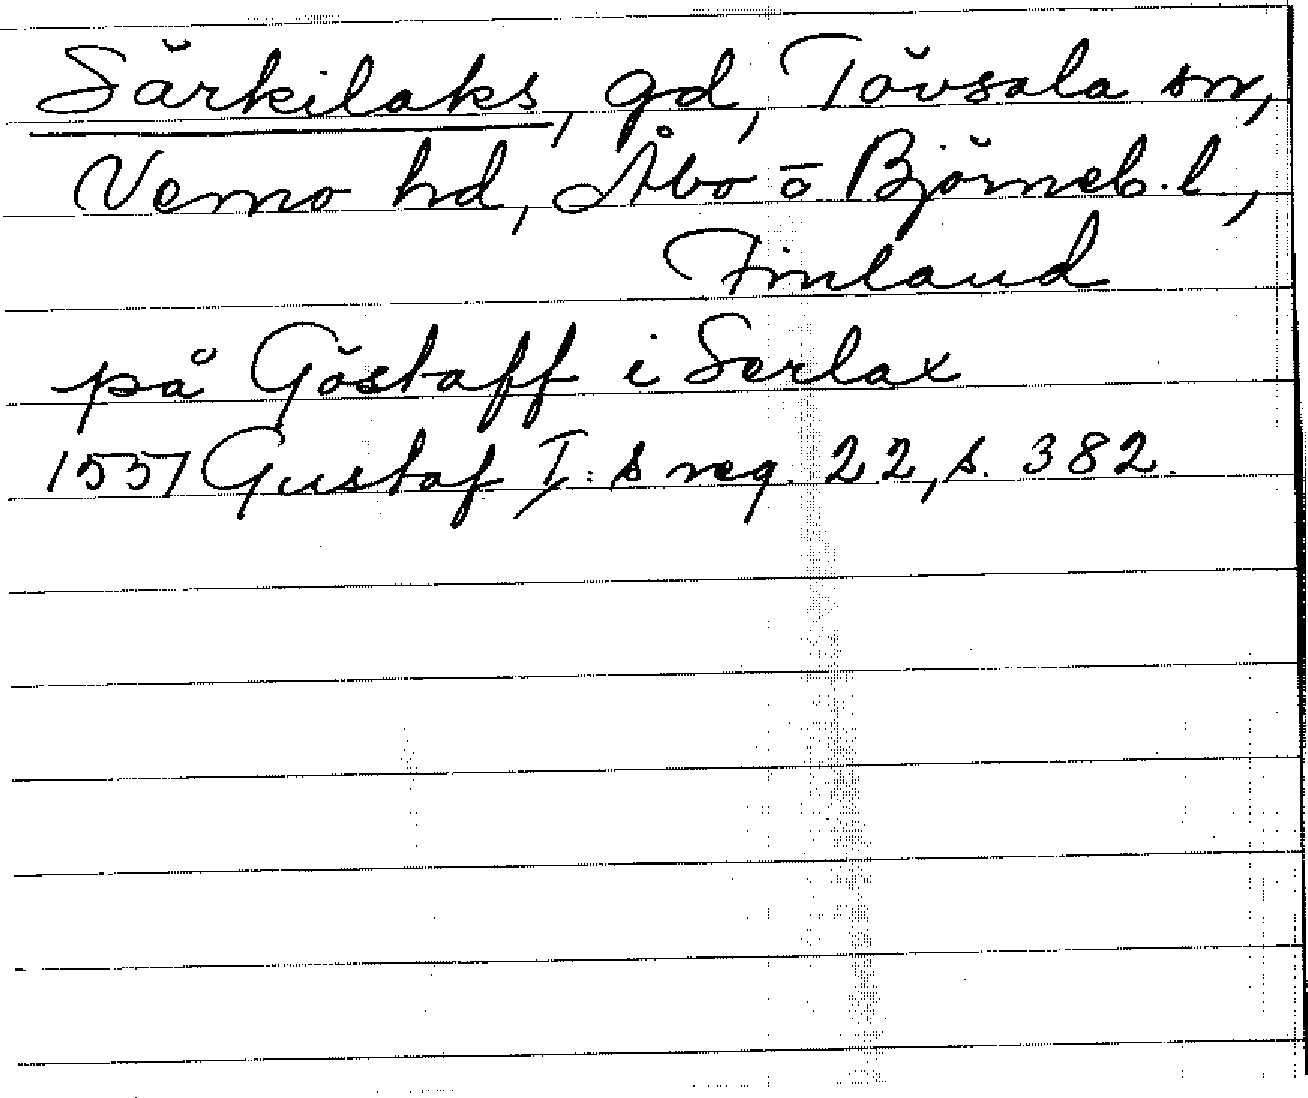 Särkilaks, gd, Tövsala sn,
Vemo hd, Åbo o Björneb. l,
Finland
på Göstaff i Serlax
1557 Gustaf I:s reg. 22, s. 382.